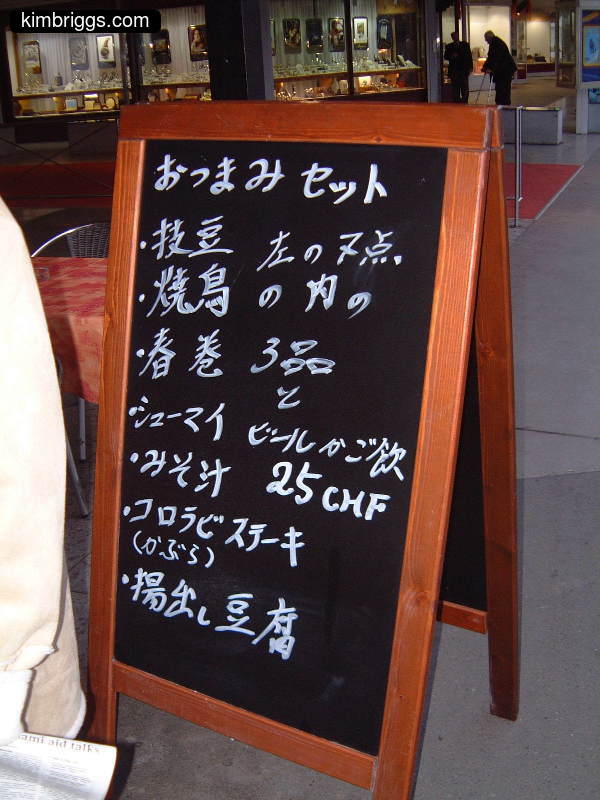 kimbriggs.com
おつまみセット
・枝豆
・焼鳥
・春巻
・シューマイ
・みそ汁
・コロラビステーキ
（かぶら）
・揚出し豆腐
左の7点、
の内の
3品
と
ビールかご飯
25CHF
ami aid talks